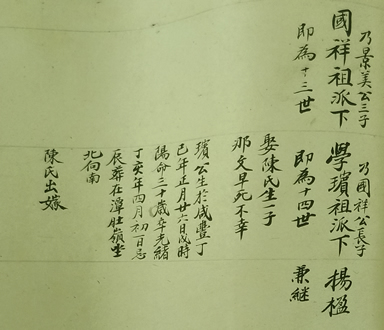 乃景美公三子
國祥祖派下
即為十三世
乃國祥公長子
學璸祖派下
即為十四世
楊楹
兼継
娶陳氏生一子
那文早死不幸
璸公生於咸豐丁
巳年正月廿六日戌時
陽命三十歲卒光緒
丁亥年四月初一日忌
辰葬在潭肚嶺坐
北向南
陳氏出嫁